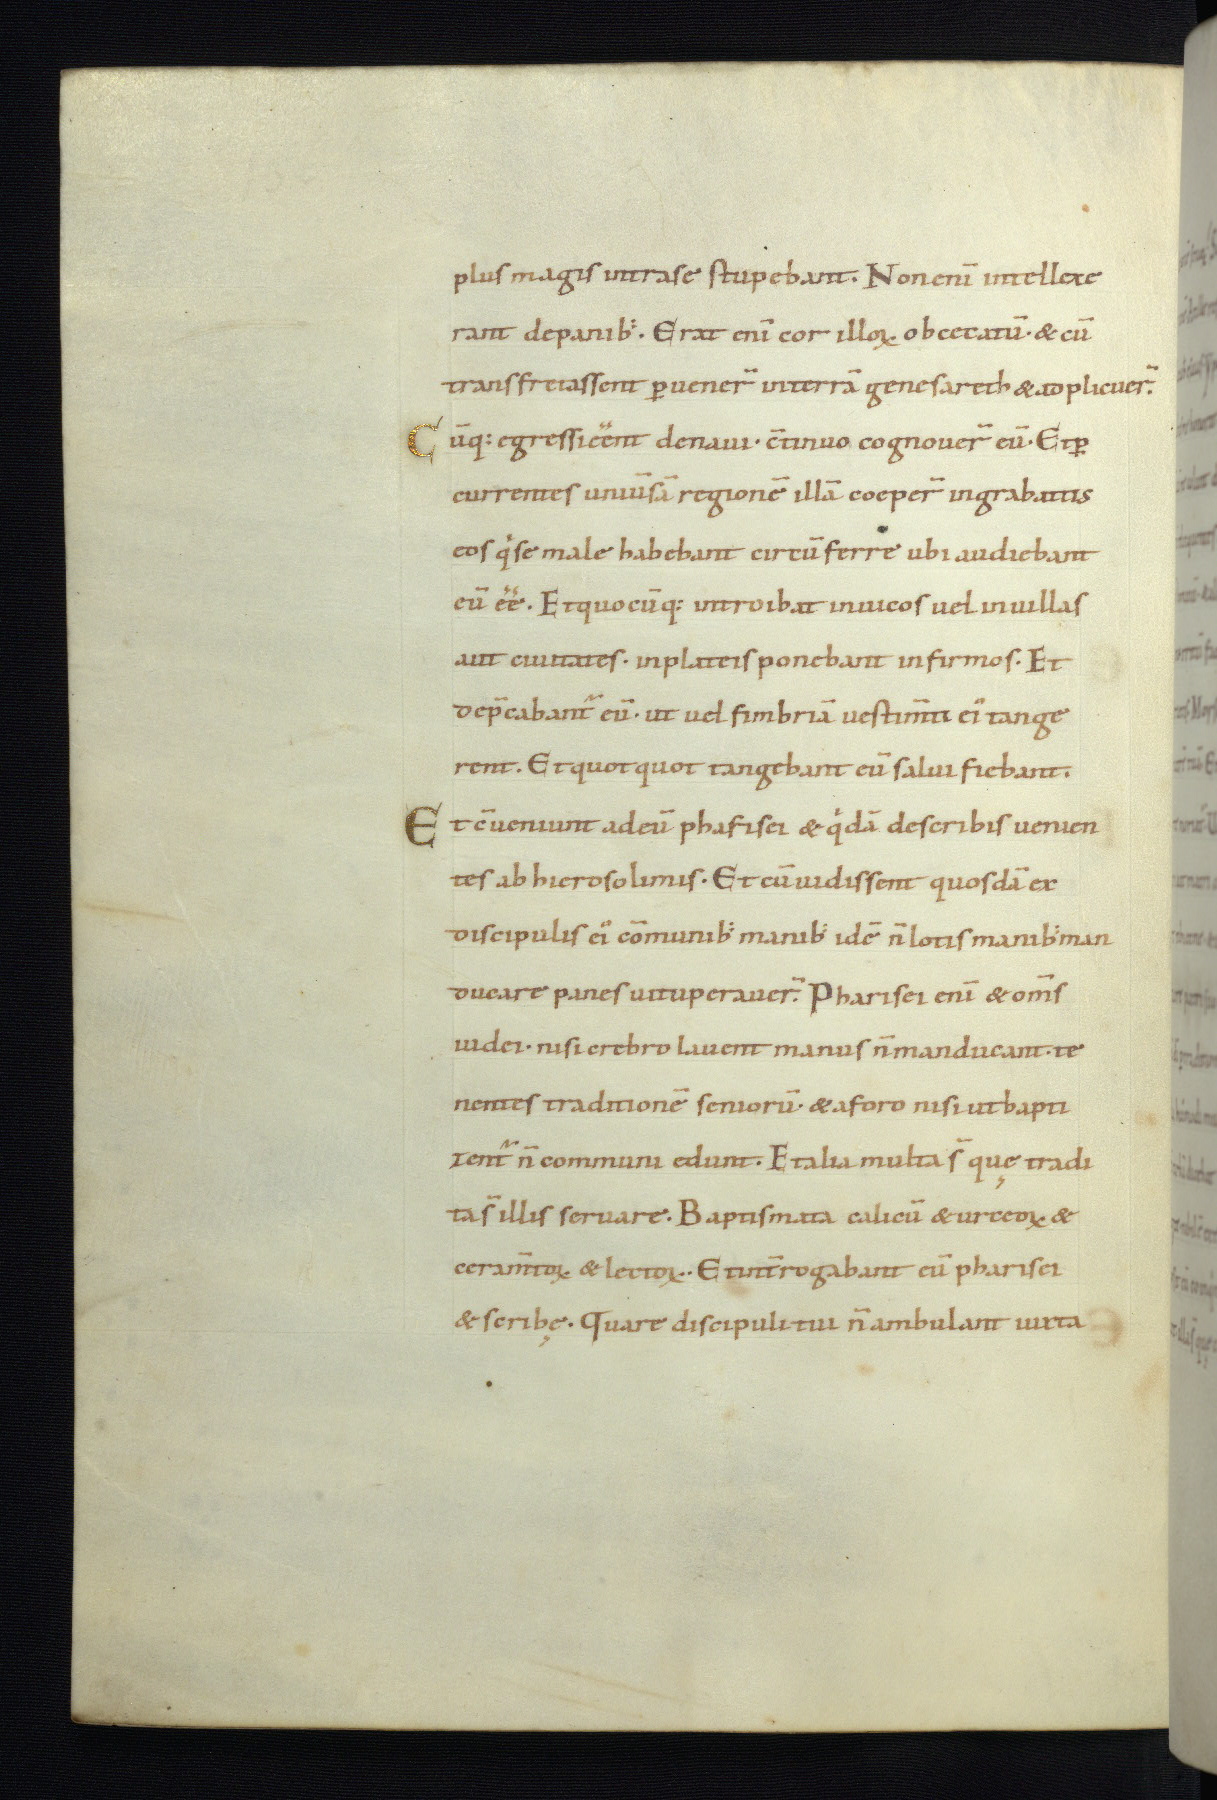 plus magis intra se stupebant. Non eni̅ intellexe
rant de panib;. Erat eni̅ cor illoꝝ obcecatu̅. & cu̅
transfretassent ꝑuener̅ in terra̅ genesareth & adplicuer̅.
Cu̅q; egressi ee̅nt de naui. c̅tinuo cognouer̅ eu̅. Et ꝑ
currentes uniu̅sa̅ regione̅ illa̅ coeper̅ in grabattis
eos qͥ se male habebant circu̅ferre ubi audiebant
eu̅ ee̅. Et quocu̅q; introibat in uicos uel in uillas
aut ciuitates. in plateis ponebant infirmos. Et
dep̅cabant̅ eu̅. ut uel fimbria̅ uestim̅ti ei̅ tange
rent. Et quotquot tangebant eu̅ salui fiebant.
Et c̅ueniunt ad eu̅ pharisei & qͥda̅ de scribis uenien
tes ab hierosolimis. Et cu̅ uidissent quosda̅ ex
discipulis ei̅ co̅munib; manib; id e̅ n̅ lotis manib; man
ducare panes uituperauer̅. Pharisei eni̅ & om̅s
iudei. nisi crebro lauent manus n̅ manducant. te
nentes traditione̅ senioru̅. & a foro nisi ut bapti
zent̅ n̅ communi edunt. Et alia multa s̅ quę tradi
ta s̅ illis seruare. Baptismata calicu̅ & urceoꝝ &
ceram̅toꝝ & lectoꝝ.. Et int̅rogabant eu̅ pharisei
& scribę. Quare discipuli tui n̅ ambulant iuxta